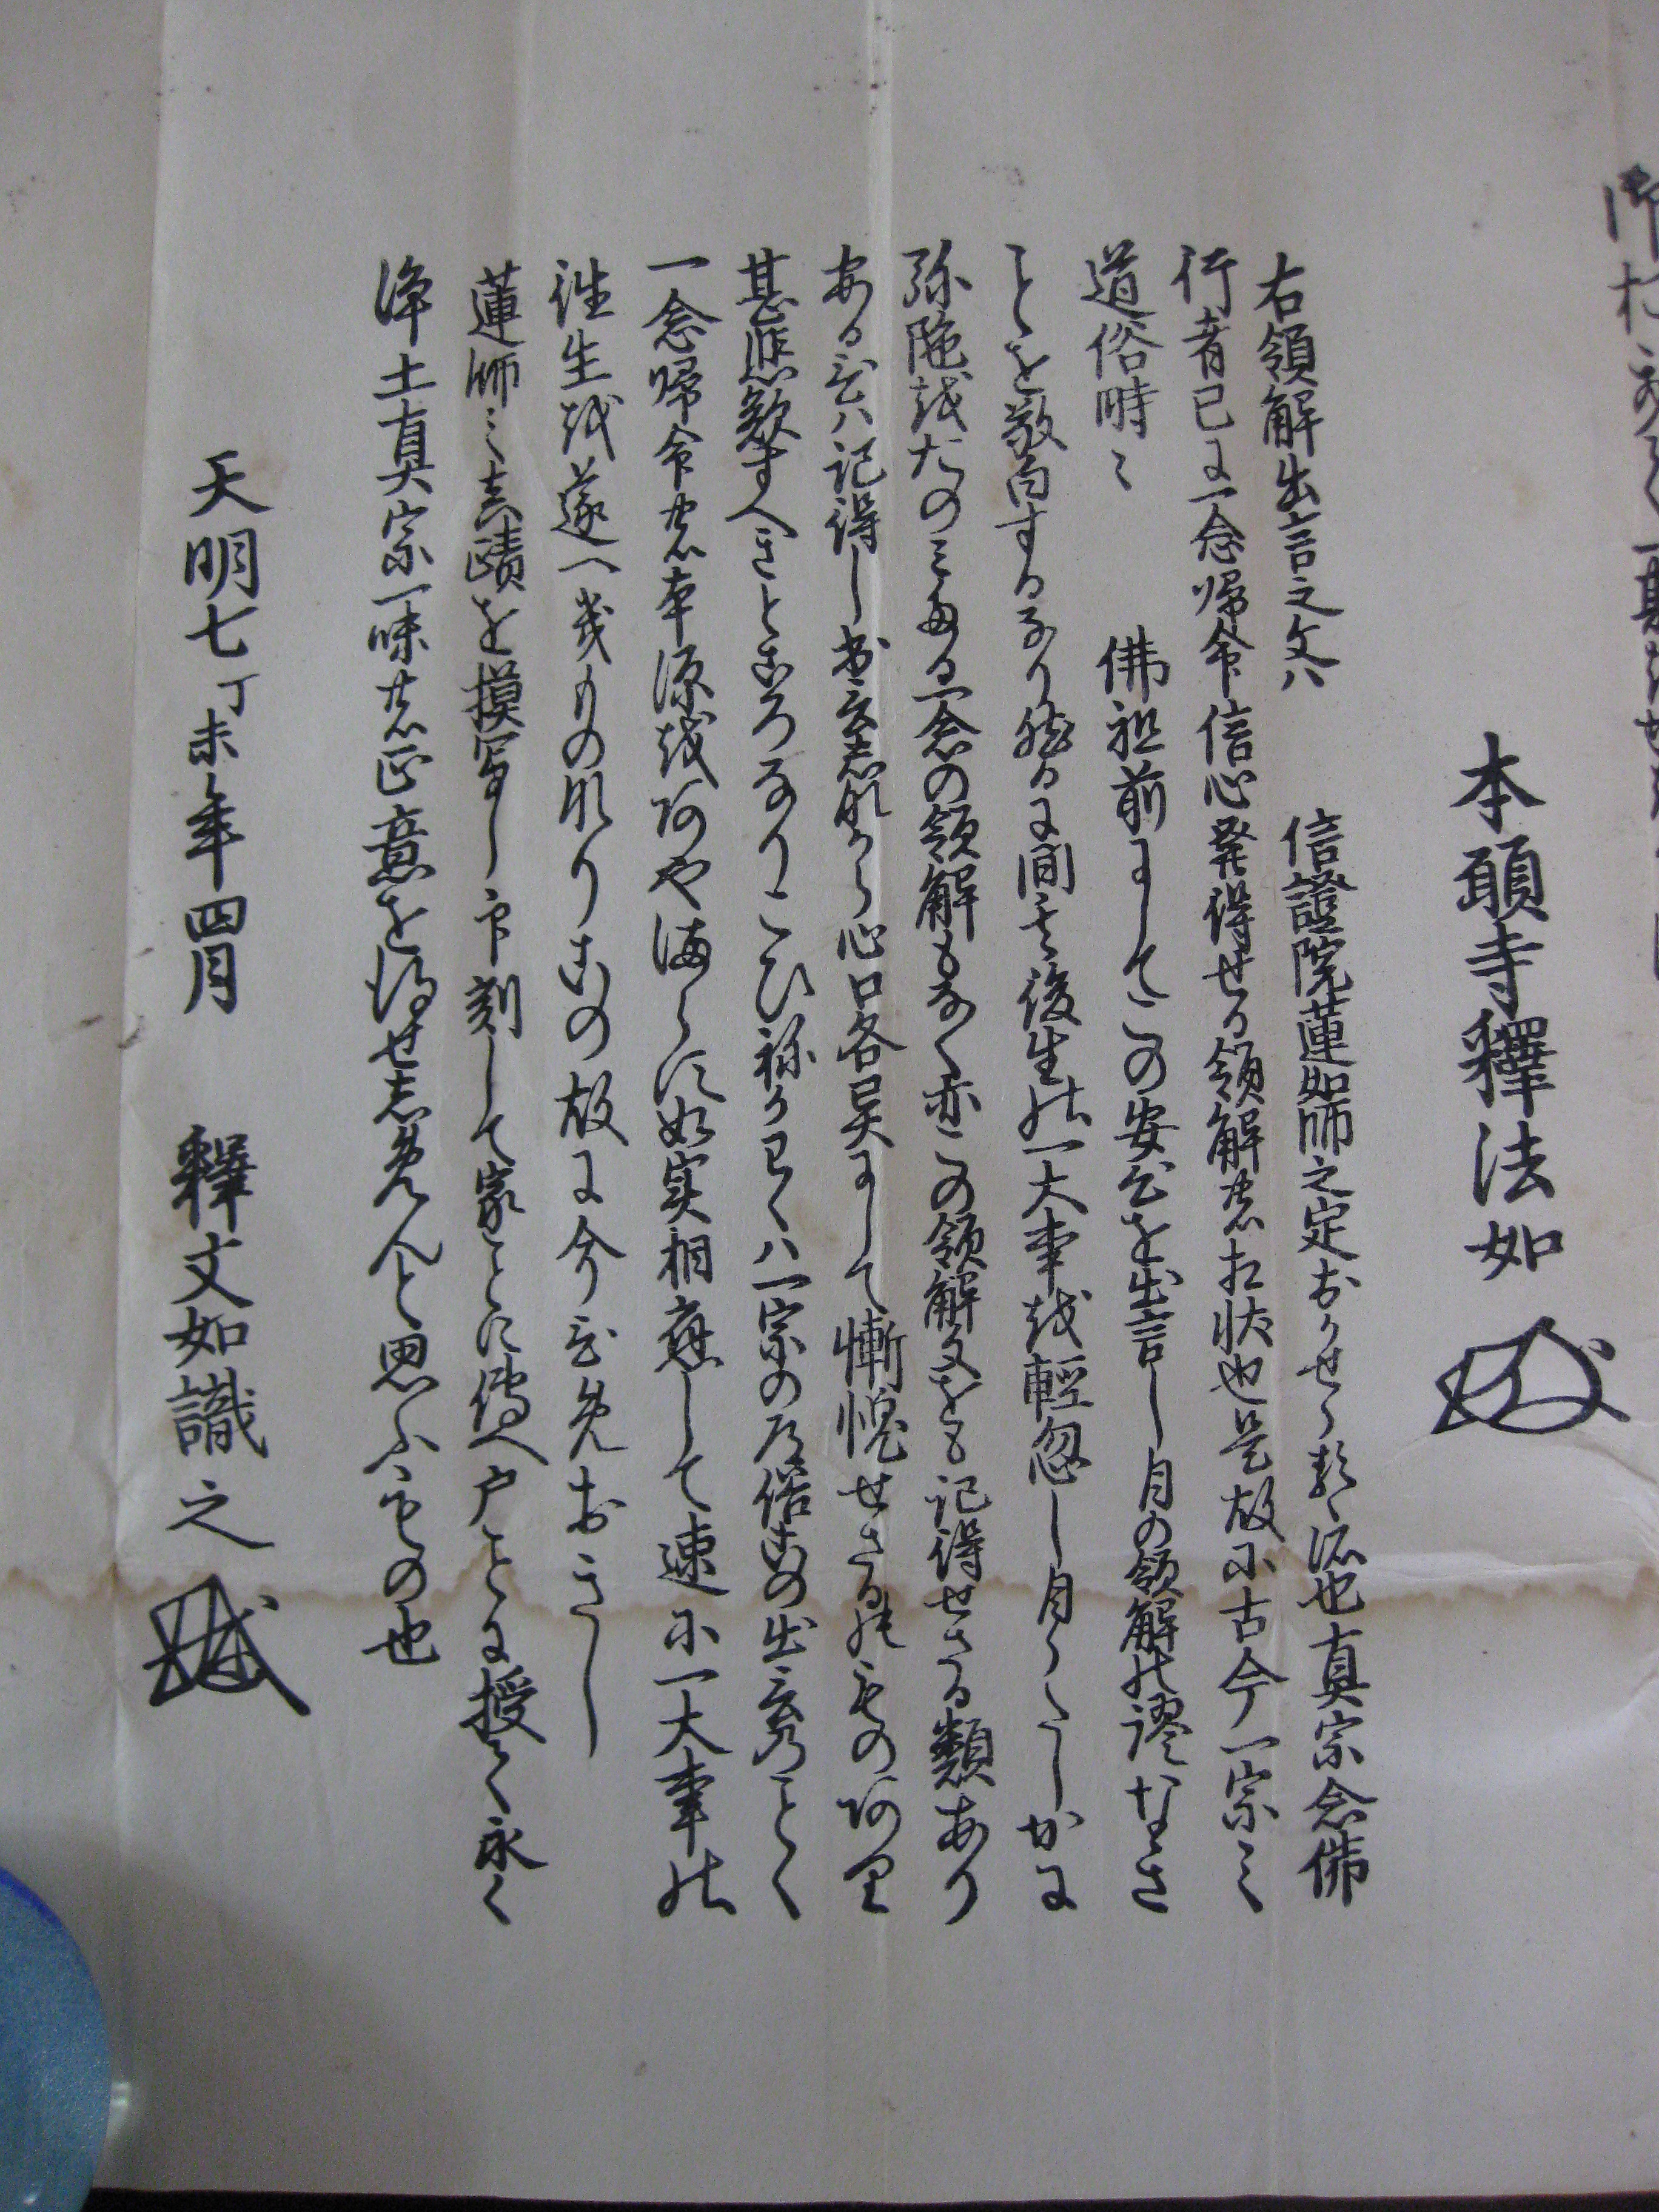 本願寺釋法如
右領解出言之文ハ　信證院蓮如師之定おかせらるゝ所也真宗念佛
行者已に一念帰命信心発得せる領解の相状也是故に古今一宗之
道俗時々　佛祖前にしてこの安心を出言し自の領解の謬なき
ことを敬白するなり然るに間には後生の一大事を軽忽し自らたしかに
弥陀をたのみたる一念の領解もなく亦この領解文をも記得せさる類あり
あるひハ記得し出言しなから心口各異にして慚愧せさるのものあり
甚悲歎すへきところなりこひねかはくハ一宗の道俗この出言のことく
一念帰命の本源をあやまらす如実相應して速に一大事の
往生を遂へきものなりこの故に今ひめおきし
蓮師之真蹟を摸写し印刻して家ことに傳へ戸ことに授て永く
浄土真宗一味の正意を得せしめんと思ふもの也
天明七丁未年四月　釋文如識之